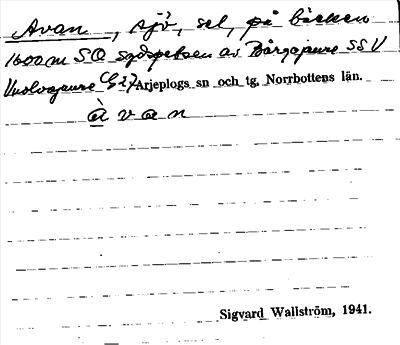 Avan, sjö, sel, på bäcken
1600 m SO sydspetsen av Bårgajaure SSV
Arjeplogs sn och tg, Norrbottens län.
à v a n
Sigvard Wallström, 1941.